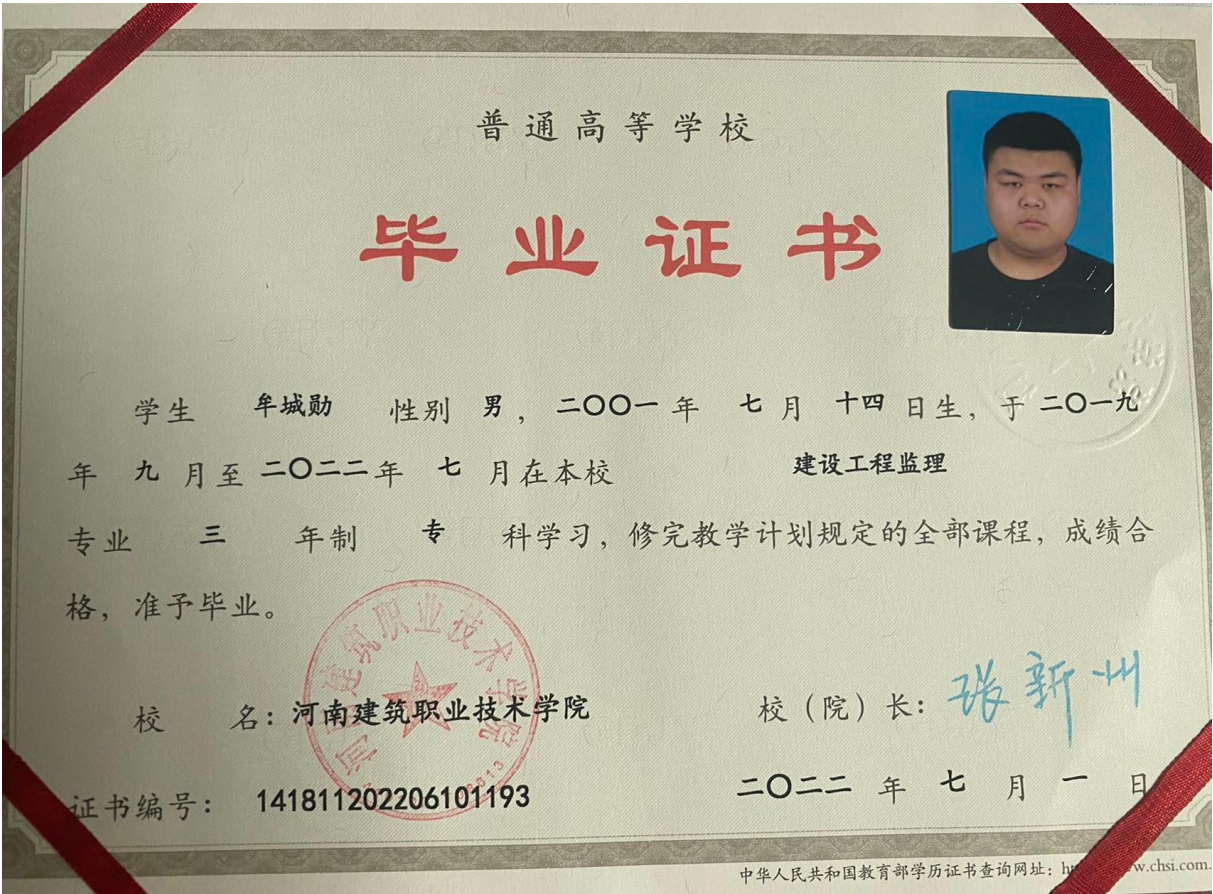 普通高等学校
毕业证书
学生 牟城勋 性别 男，二〇〇一年 七月 十四日生，于二〇一九
年 九 月至二〇二二年 七 月在本校 建设工程监理
专业 三 年制 专 科学习，修完教学计划规定的全部课程，成绩合
格，准予毕业。
河南建筑职业技术学院
校 名：河南建筑职业技术学院 校（院）长：张新州
证书编号：141811202206101193 二〇二二 年 七 月 一 日
中华人民共和国教育部学历证书查询网址：w.chsi.com.